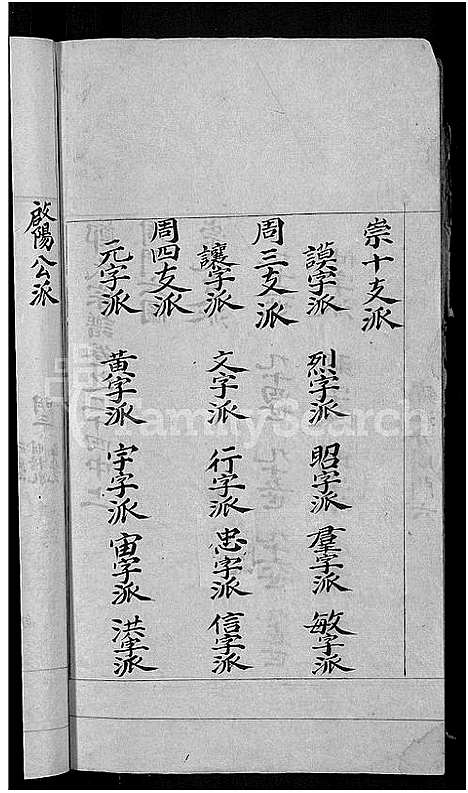 崇十支派
謨字派 烈字派 昭字派 羣字派 敏字派
周三支派
讓字派 文字派 行字派 忠字派 信字派
周四支派
元字派 黃字派 宇字派 宙字派 洪字派
啟陽公派
FamilySearch